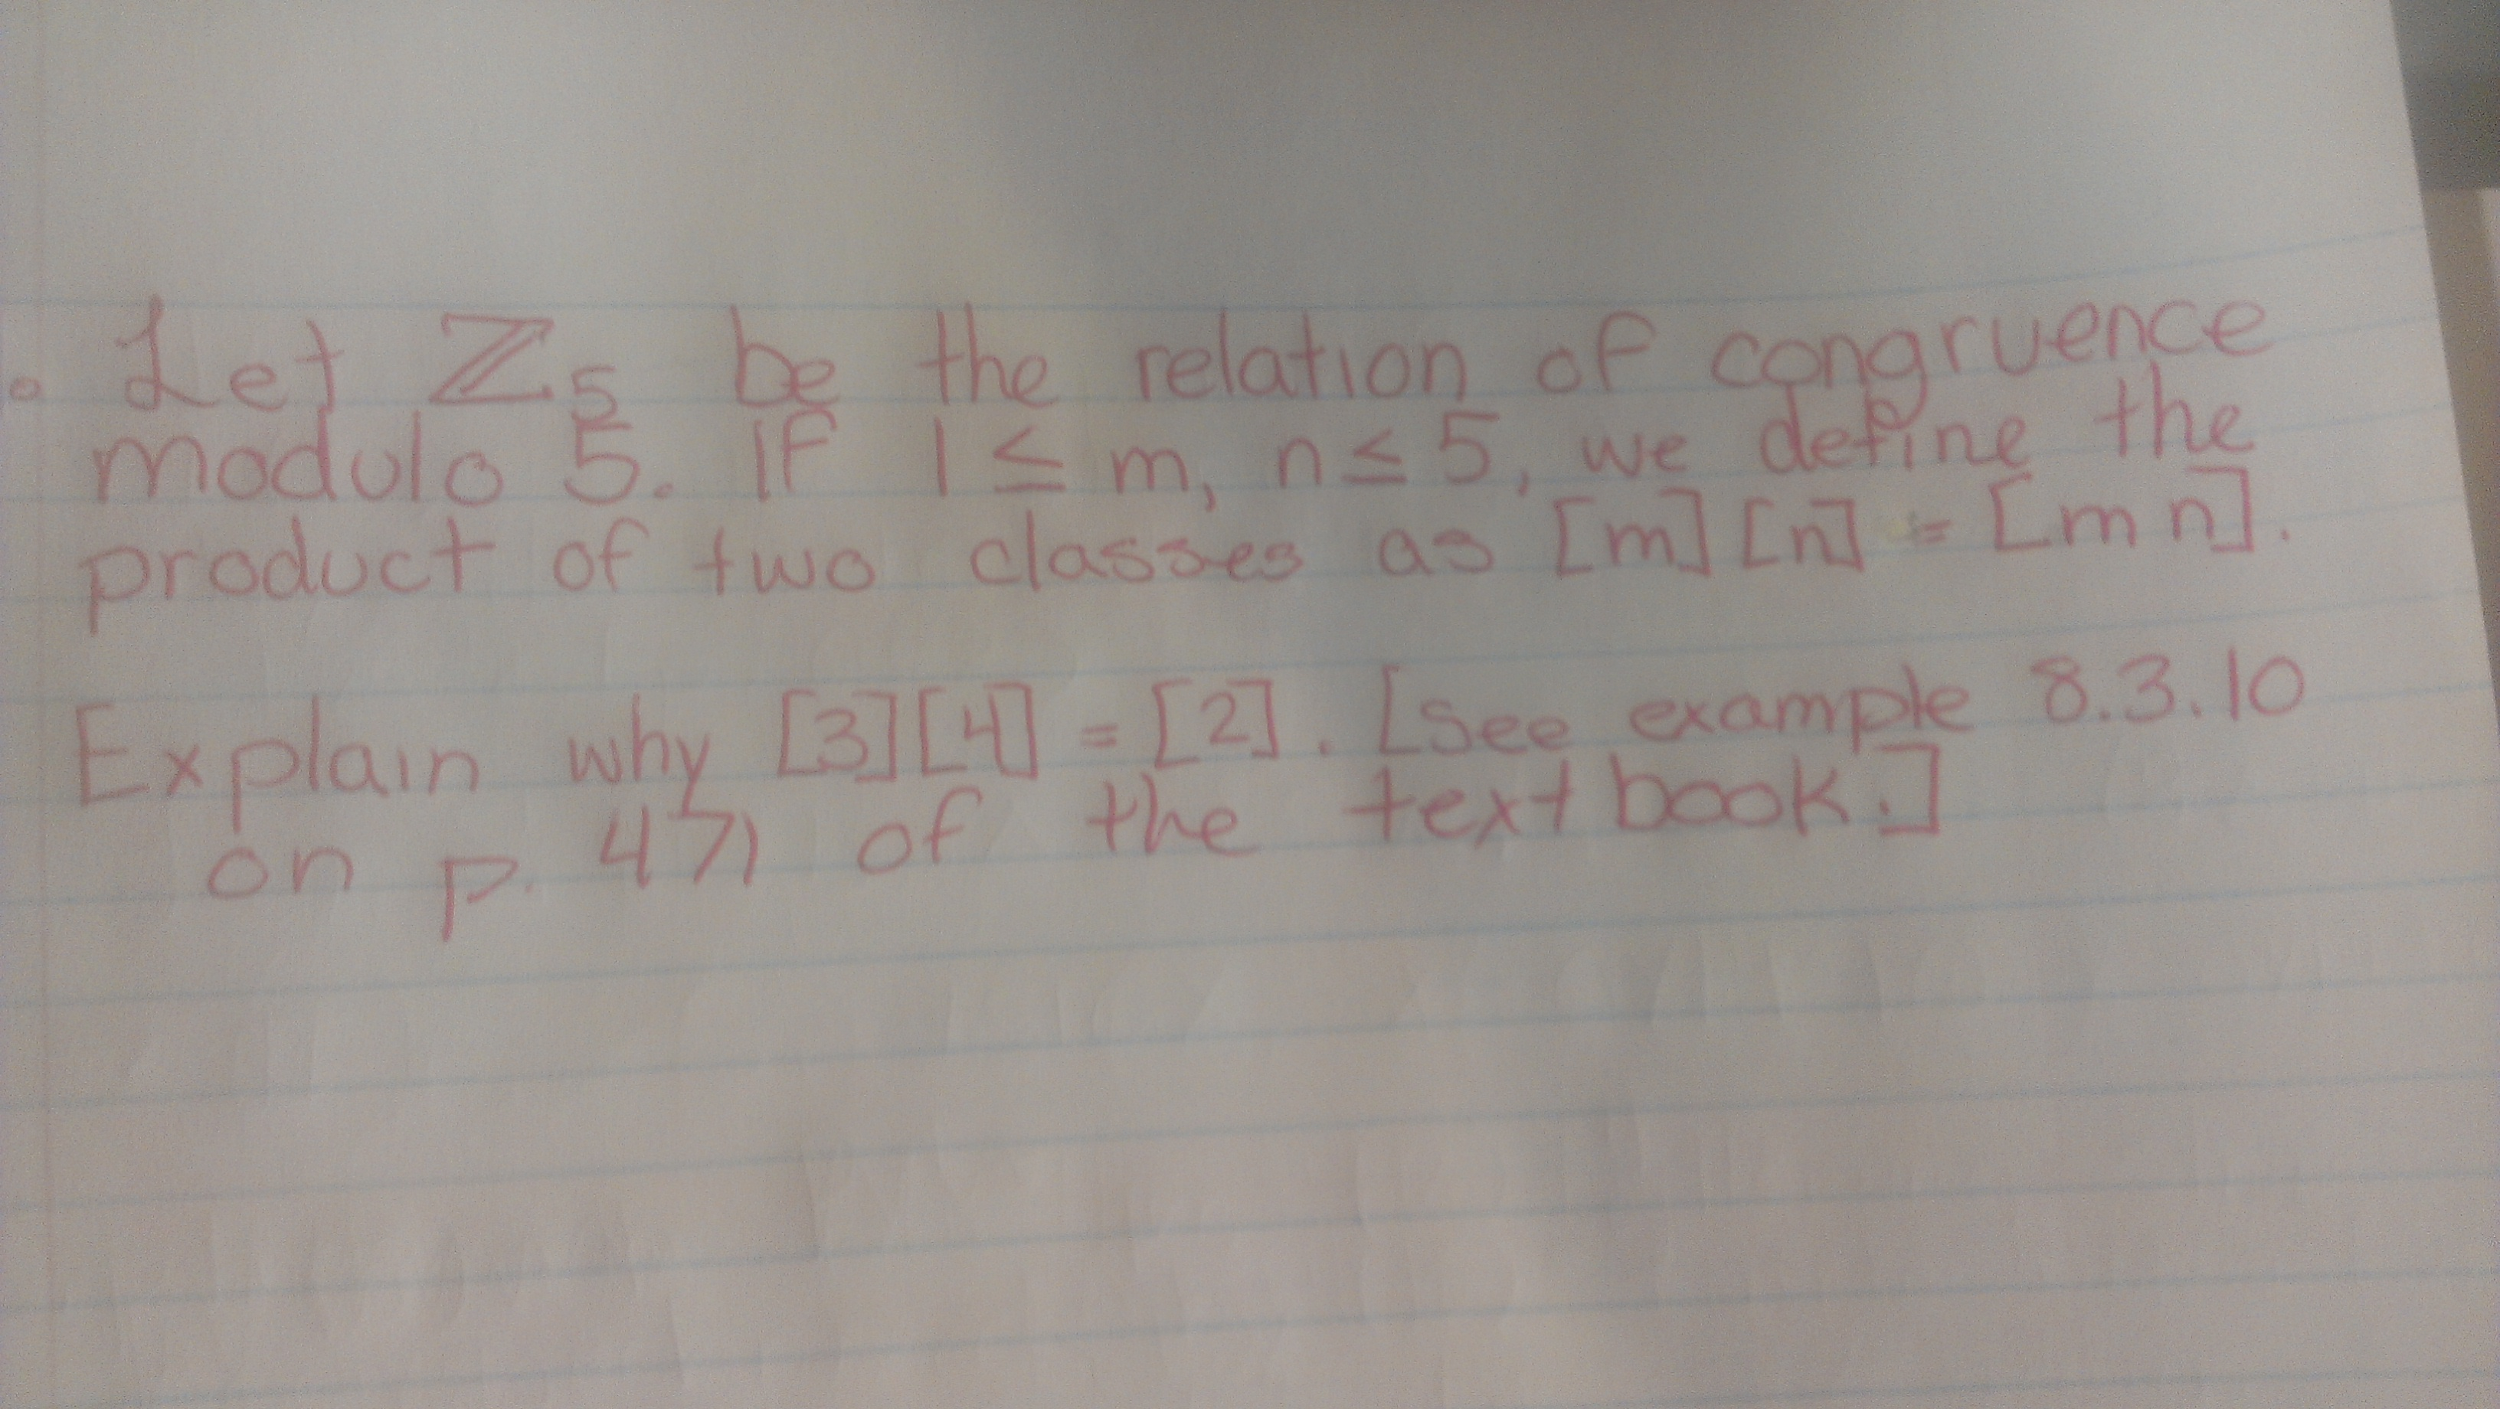 Let ℤ5 be the relation of congruence
modulo 5. If 1 ≤ m, n ≤ 5, we define the
product of two classes as [m][n] = [mn].
Explain why [3][4] = [2]. [See example 8.3.10
on p. 471 of the textbook.]